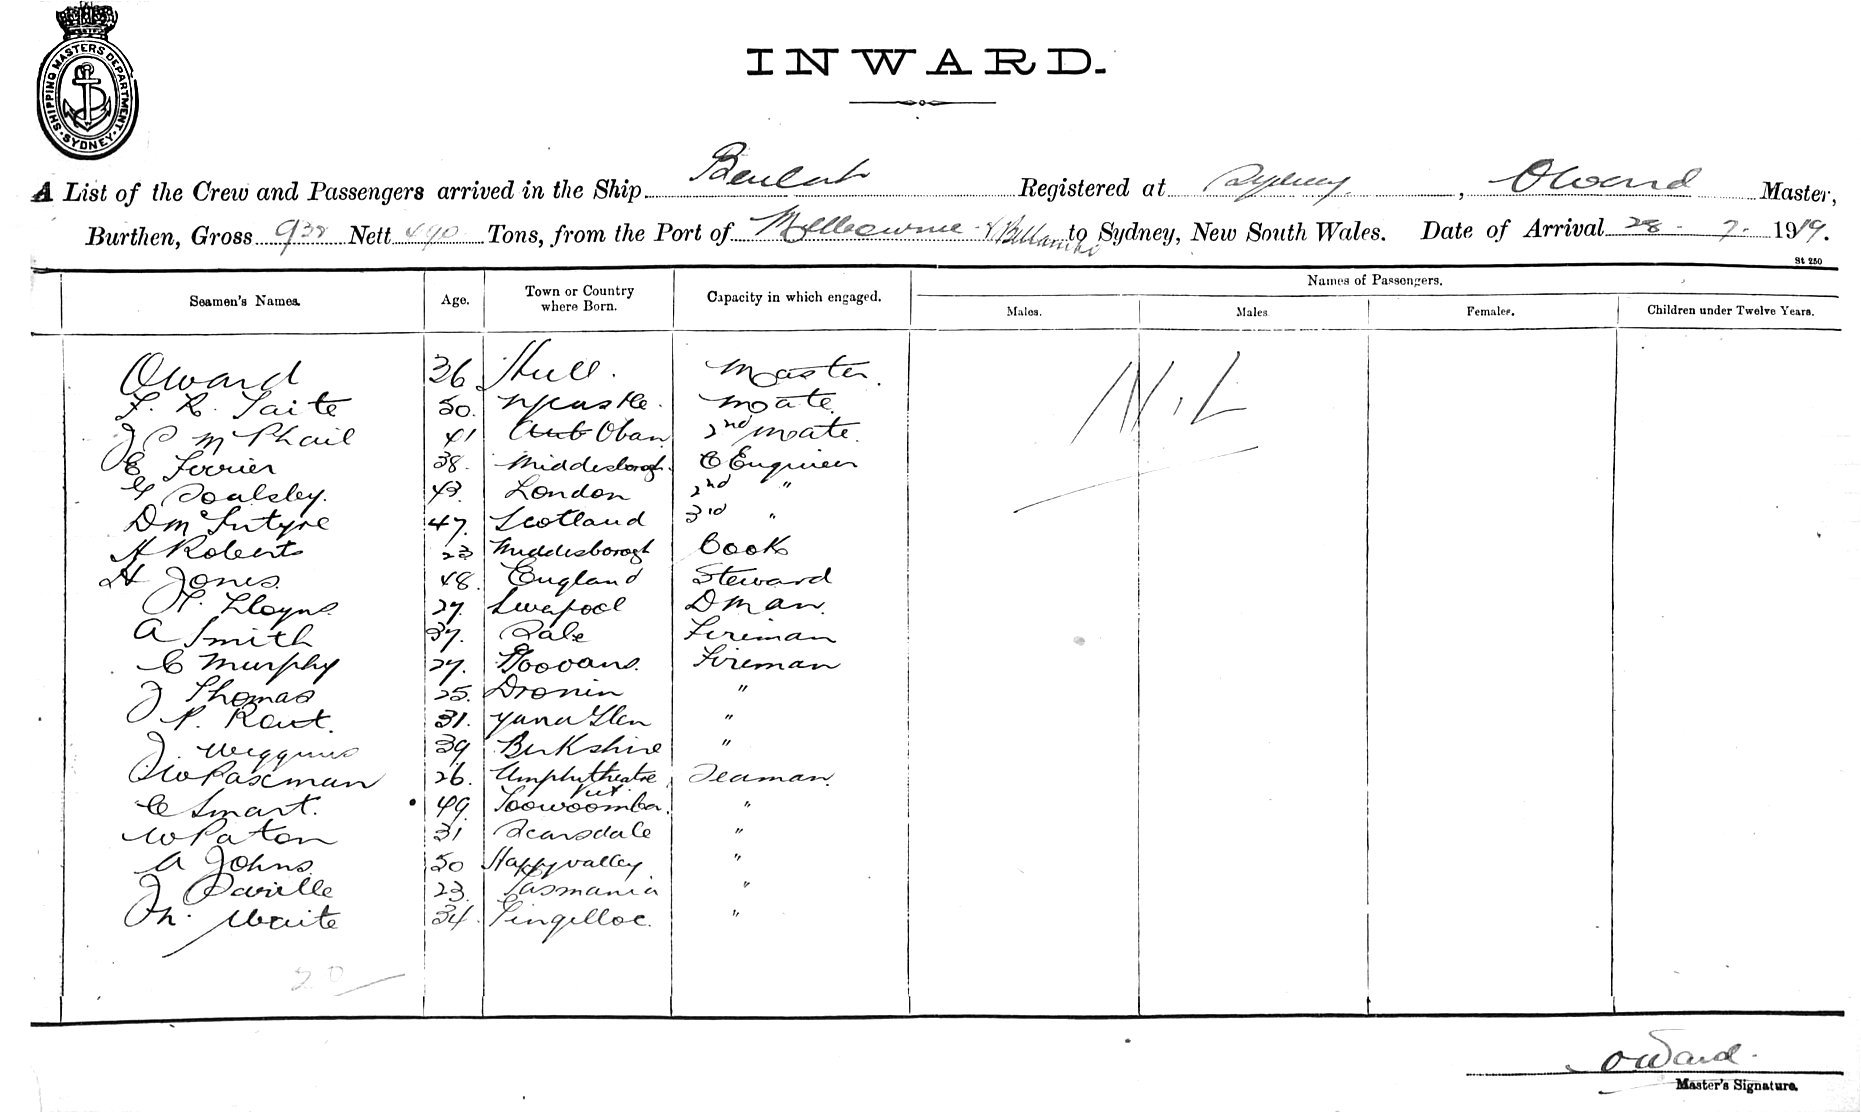 SHIPPING MASTERS DEPARTMENT
SYDNEY
INWARD.
A List of the Crew and Passengers arrived in the Ship Beulah Registered at Sydney, O Ward Master,
Burthen, Gross 938 Nett 490 Tons, from the Port of Melbourne & Bellambi to Sydney, New South Wales. Date of Arrival 28 - 7 - 1919.
St 250
Seamen's Names. Age. Town or Country where Born. Capacity in which engaged. Names of Passengers.
Males. Males Females. Children under Twelve Years.
O Ward 36 Hull. Master.
F. R. Taite 50. N'castle. Mate.
J C McPhail 41 Oban 2nd Mate.
E Ferrier 38. Middesborogh. C Engineer
G Soulsby. 43. London 2nd "
D McIntyre 47. Scotland 3rd "
H Roberts 23 Middesborogh Cook
H Jones. 48. England Steward
27. Liverpool D man.
A Smith 37. Sale Fireman
C Murphy 27. Fireman
J Thomas 25. Dronin "
P. 31. Yarra Glen "
J. Wiggins 39 Berkshire "
J W Paxman 26. Amphitheatre Vict Seaman.
C Smart. 49. Toowoomba. "
W Paton 31 Scarsdale "
A Johns. 50 Happy valley "
J Saville 23. Tasmania "
Th. Waite 34. "
NIL
20
O Ward.
Master's Signature.